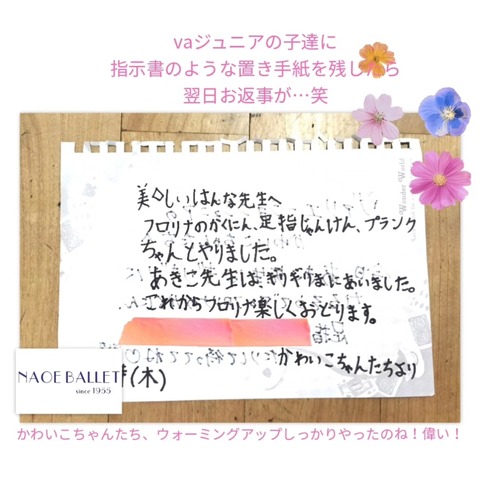 vaジュニアの子達に
指示書のような置き手紙を残したら
翌日お返事が…笑
美々しいはんな先生へ
フロリナのかくにん、足指じゃんけん、プランク
ちゃんとやりました。
あきこ先生は、ぎりぎりまにあいました。
これからフロリナ楽しくおどります。
かわいこちゃんたちより
(木)
NAOE BALLET
since 1955
かわいこちゃんたち、ウォーミングアップしっかりやったのね！偉い！